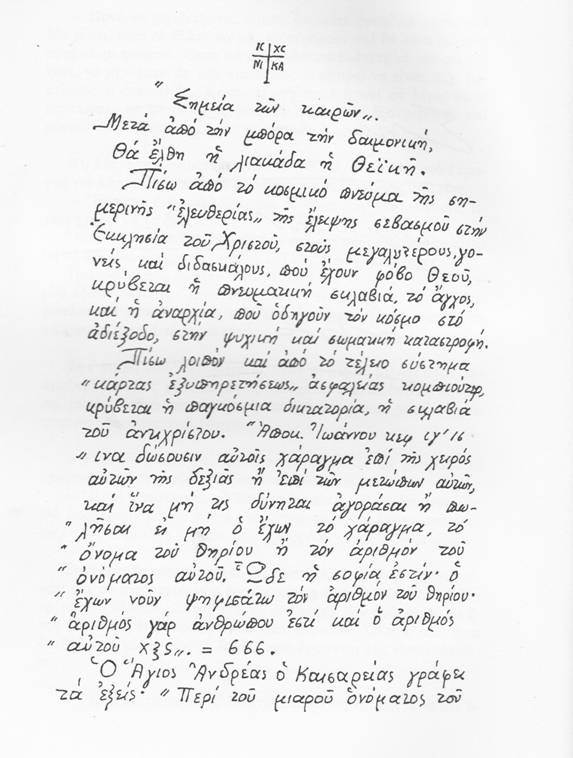 IC XC
NI KA
"Σημεῖα τῶν καιρῶν„.
Μετά ἀπό τήν μπόρα τήν δαιμονική,
Θά ἔλθη ἡ λιακάδα ἡ Θεϊκή.
Πίσω ἀπό τό κοσμικό πνεῦμα τῆς ση-
μερινῆς "ἐλευθερίας„ τῆς ἔλειψης σεβασμοῦ στήν
Ἐκκλησία τοῦ Χριστοῦ, στούς μεγαλυτέρους, γο-
νεῖς καί διδασκάλους, πού ἔχουν φόβο Θεοῦ,
κρύβεται ἡ πνευματική σκλαβιά, τό ἄγχος,
καί ἡ ἀναρχία, πού ὁδηγοῦν τόν κόσμο στό
ἀδιέξοδο, στήν ψυχική καί σωματική καταστροφή.
Πίσω λοιπόν καί ἀπό τό τέλειο σύστημα
"κάρτας ἐξυπηρετήσεως„ ἀσφαλείας κομπιοῦτερ,
κρύβεται ἡ παγκόσμια δικτατορία, ἡ σκλαβιά
τοῦ ἀντιχρίστου. "Ἀποκ. Ἰωάννου κεφ ιγ' 16
"ινα δώσουσιν αὐτοῖς χάραγμα ἐπί τῆς χειρός
αὐτῶν τῆς δεξιᾶς ἤ ἐπί τῶν μετώπων αὐτῶν,
καί ἵνα μή τις δύνηται ἀγοράσαι ἤ πω-
"λῆσαι εἰ μή ὁ ἔχων τό χάραγμα, τό
"ὄνομα τοῦ θηρίου ἤ τόν ἀριθμόν τοῦ
"ὀνόματος αὐτοῦ. Ὧδε ἡ σοφία ἐστίν· ὁ
"ἔχων νοῦν ψηφισάτω τόν ἀριθμόν τοῦ θηρίου·
"ἀριθμός γάρ ἀνθρώπου ἐστί καί ὁ ἀριθμός
"αὐτοῦ χξς„. = 666.
Ὁ Ἅγιος Ἀνδρέας ὁ Καισαρείας γράφει
τά ἑξεῖς· "Περί τοῦ μιαροῦ ὀνόματος τοῦ